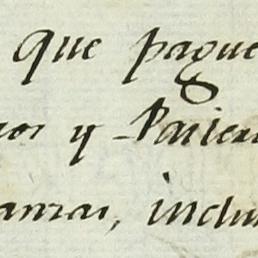 que pague
y Parien
anzas, inclu